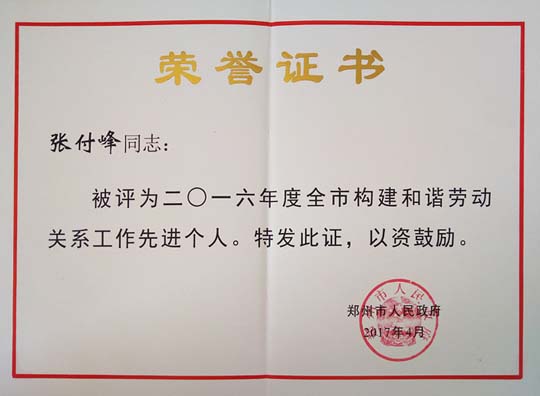 荣誉证书
张付峰同志：
被评为二〇一六年度全市构建和谐劳动
关系工作先进个人。特发此证，以资鼓励。
郑州市人民政府
2017年4月